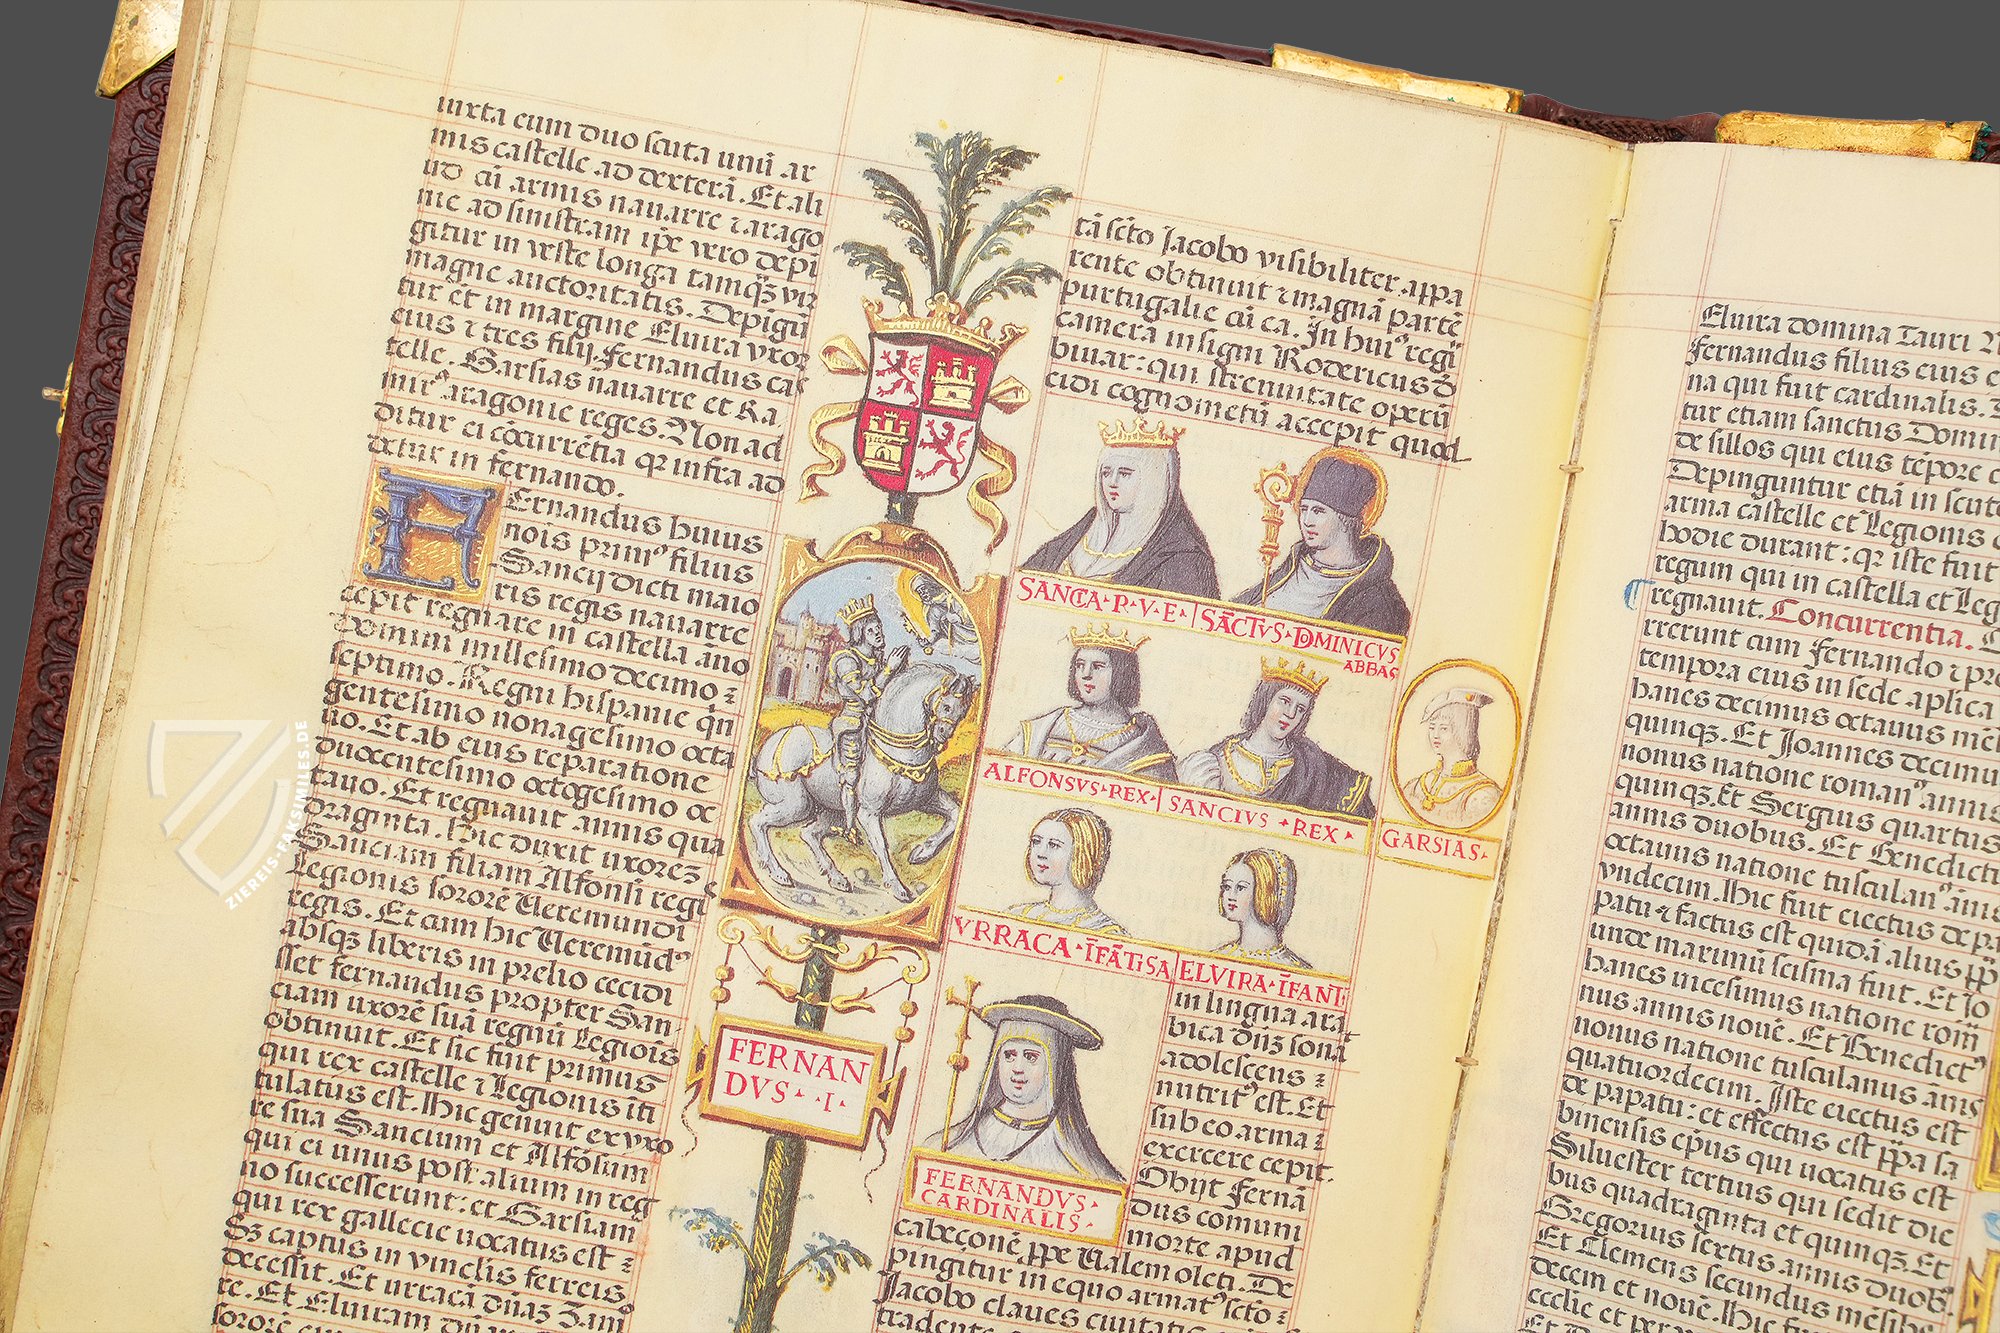 iuxta cum duo scuta unū ar
mis castelle ad dexterā. Et ali
ud cū armis nauarre ⁊ arago
nie ad sinistram ipẽ vero depi
gitur in veste longa tamqȝ vir
magne auctoritatis. Depigū
tur et in margine Eluira vxor
eius ⁊ tres filij. Fernandus cas
telle. Garsias nauarre et Ra
mirꝰ aragonie reges. Non ad
ditur ei cōcurrētia qꝛ infra ad
detur in fernando.
FErnandus huius
nois primꝰ filius
Sancij dicti maio
ris regis nauarre
cepit regnare in castella āno
Domini millesimo decimo ⁊
septimo. Regni hispanie qn̄
gentesimo nonagesimo octa
uo. Et ab eius reparatione
ducentesimo octogesimo oc
tauo. Et regnauit annis qua
draginta. Hic duxit uxoreȝ
Sanciam filiam Alfonsi regi
Legionis sororē Ueremundi
regis. Et cum hic Ueremūdꝰ
absqȝ liberis in prelio cecidi
sset fernandus propter San-
ciam uxorē suā regnū Legiōis
obtinuit. Et sic fuit primus
qui rex castelle ⁊ Legionis iti
tulatus est. Hic genuit ex vxo
re sua Sancium et Alfōsum
qui ei unus post alium in reg
no successerunt: et Garsiam
qui rex gallecie uocatus est ⁊
Sȝ captus in vinclis ferreis
decessit. Et urracā dn̄aȝ Zam
re. Et Eluiram
sororē
FERNAN
DVS · I ·
tā scto Jacobo visibiliter appa
rente obtinuit ⁊ magnā partē
purtugalie cū ea. In huiꝰ regij
camera insigni Rodericus d̄
biuar: qui strenuitate operū
cidi cognometū accepit quod
SANCTA · R · V · E ·
SĀCTVS · DOMINICVS
ABBAS
ALFONSVS · REX ·
SANCIVS · REX ·
GARSIAS ·
VRRACA · ĪFĀTISA
ELVIRA · ĪFANT:
FERNANDVS ·
CARDINALIS ·
in lingua ara
bica dn̄ȝ sonā
adolescens ⁊
nutritꝰ est. Et
sub eo arma ⁊
exercere cepit.
Obijt Fernā
dus comuni
morte apud
cabeçonē ꝓpe Ualem oleti. De
pingitur in equo armatꝰ scto ⁊
Jacobo claues ciuitatis
tradente
Eluira domina Tauri
Fernandus filius eius
na qui fuit cardinalis.
tur etiam sanctus Domin
de sillos qui eius tēpore
Depinguntur etiā in scut
arma castelle et Legionis
hodie durant: qꝛ iste fuit
regum qui in castella et Leg
regnauit. Concurrentia.
rrerunt cum Fernando ⁊
tempora eius in sede aplica
hanes decimus octauus mē
quinqȝ. Et Joannes decimu
nonus natione romanꝰ annis
quinqȝ. Et Sergius quartus
annis duobus. Et Benedicti
octauus natione tusculanꝰ
vndecim. Hic fuit eiectus de pa
patu ⁊ factus est quidā alius pp̄
unde maximū scisma fuit. Et Jo
hanes vicesimus natione rom̄
nus annis nouē. Et Benedictꝰ
nonus natione tusculanus ānis
quatuordecim. Iste eiectus est
de papatu: et effectus est pp̄a sa
binensis ep̄us qui uocatus est
Siluester tertius qui sedit die
bus quadraginta et quinqȝ. Et
Gregorius sextus annis duobꝰ.
Et Clemens secundus mēsibꝰ
decem et nouē. Hic
ecclie et
ZIEREIS-FAKSIMILES.DE